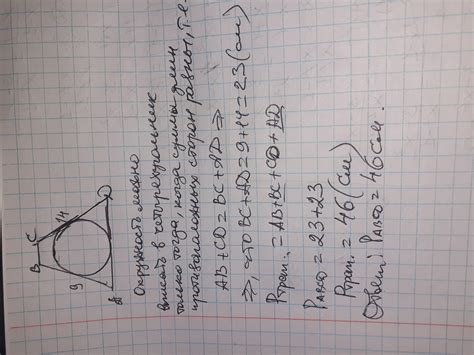 B C
9 14
A D
Окружность можно
вписать в четырехугольник
только тогда, когда суммы длин
противоположных сторон равны, т.е.
AB + CD = BC + AD ⇒
⇒, то BC + AD = 9 + 14 = 23 (см)
Pтрап. = AB + BC + CD + AD
PABCD = 23 + 23
Pтрап. = 46 (см)
Ответ: PABCD = 46 см.